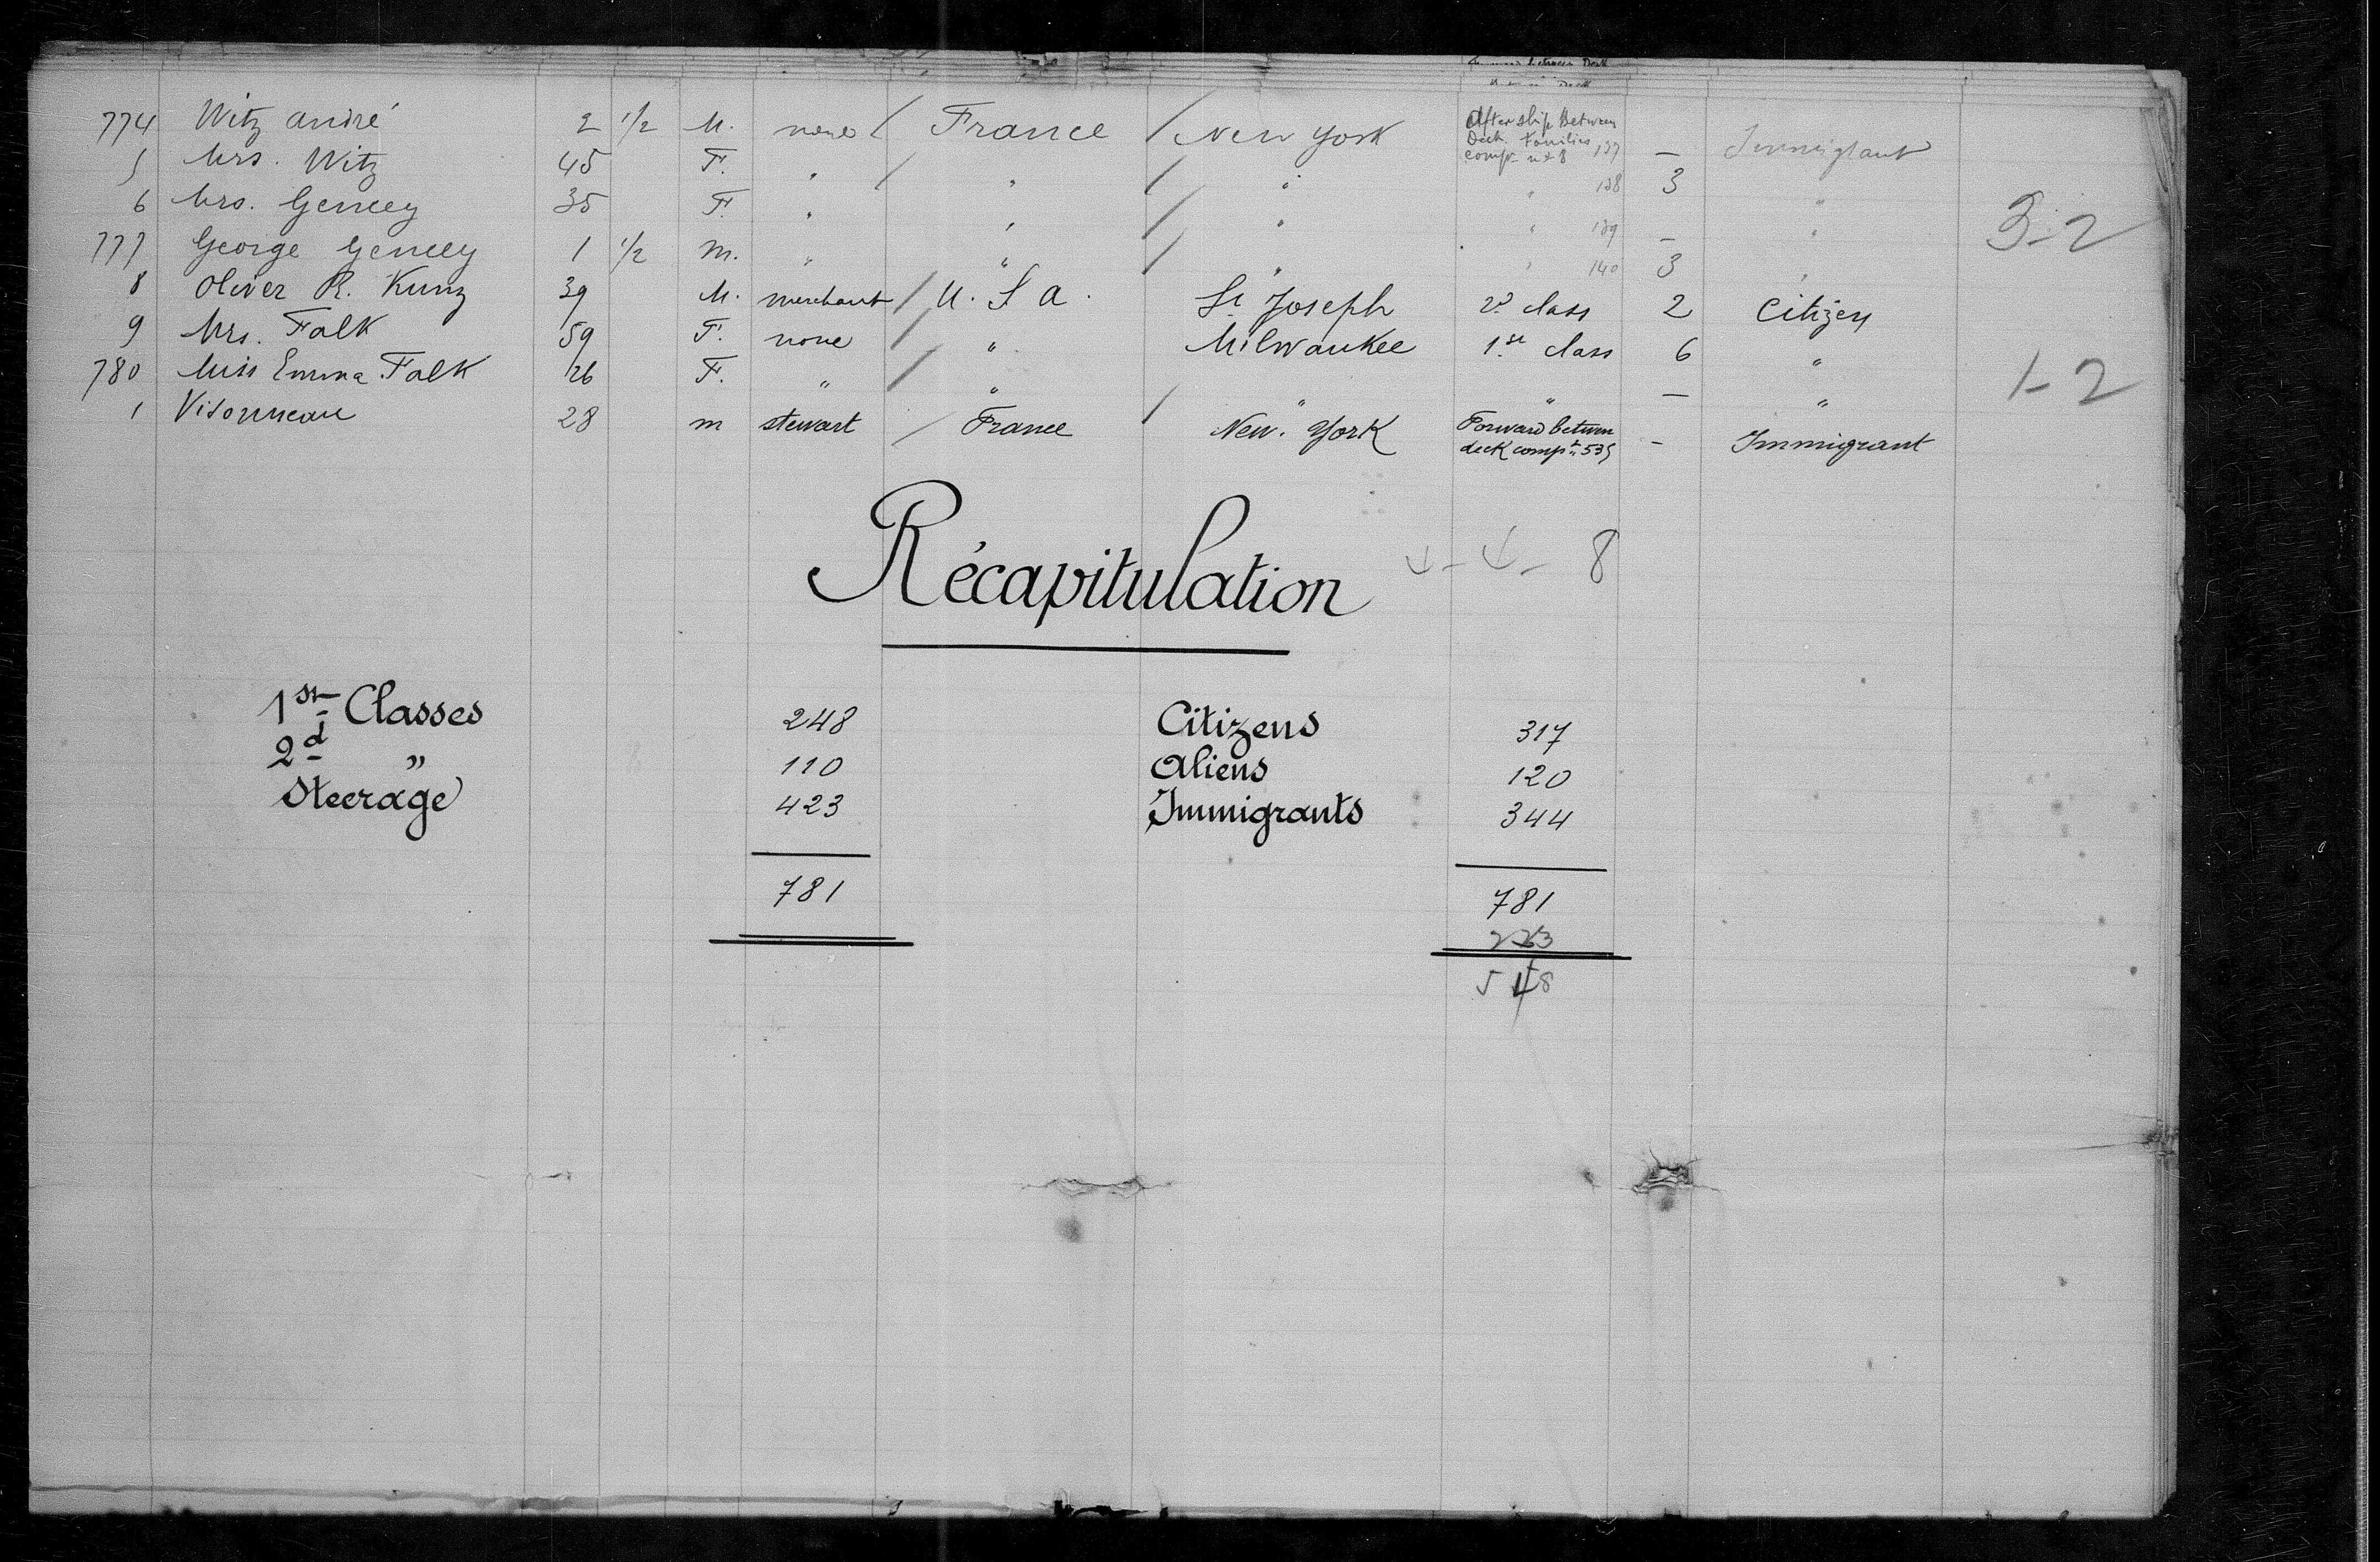 774 Witz André 2 1/2 M. none / France / New York After ship Between Deck Families comp. nº 8 137 — Immigrant
5 Mrs. Witz 45 F. " / " / " " 138 3 "
6 Mrs. Gencey 35 F. " " / " " 139 — " 3-2
777 George Gencey 1 1/2 m. " " / " " 140 3 "
8 Oliver R. Kunz 39 M. merchant / U. S a. St Joseph 2d class 2 Citizen
9 Mrs. Falk 59 F. none / " Milwaukee 1.st class 6 "
780 Miss Emma Falk 26 F. " / " " " — " 1-2
1 Visonneau 28 m stewart / France / New. York Forward between deck compt. 535 - Immigrant
Récapitulation 8
1st Classes 248 Citizens 317
2d " 110 Aliens 120
Steerage 423 Immigrants 344
781 781
223